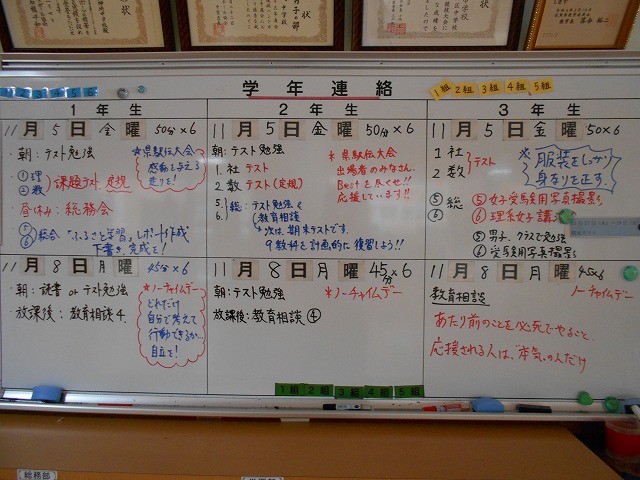 学年連絡
1組 2組 3組 4組 5組
1年生
11月5日金曜 50分×6
・朝:テスト勉強
①理
②数
課題テスト、定規
・昼休み:総務会
⑤⑥総合 「ふるさと学習」レポート作成
下書き完成を!
※県駅伝大会
感動を与える
走りを!
11月8日月曜 45分×6
・朝:読書 or テスト勉強
・放課後:教育相談4.
※ノーチャイムデー
どれだけ
自分で考えて
行動できるか…
自立を!
2年生
11月5日金曜 50分×6
朝:テスト勉強
1. 社 テスト
2. 数 テスト(定規)
5.6. 総:テスト勉強&
教育相談
次は、期末テストです。
9教科を計画的に復習しよう!!
※県駅伝大会
出場者のみなさん、
Bestを尽くせ!!
応援しています!!
11月8日月曜 45分×6
朝:テスト勉強
放課後:教育相談④
※ノーチャイムデー
3年生
11月5日金曜 50×6
1 社
2 数
テスト
※服装をしっかり
身なりを正す。
⑤⑥総
⑤女子受験用写真撮影
⑥理系女子講
⑤男子.クラスで勉強
⑥受験用写真撮影
11月8日月曜 45×6
教育相談
ノーチャイムデー
あたり前のことを必死でやること、
応援される人は、"本気"の人だけ
1組 2組 3組 4組 5組
総務部